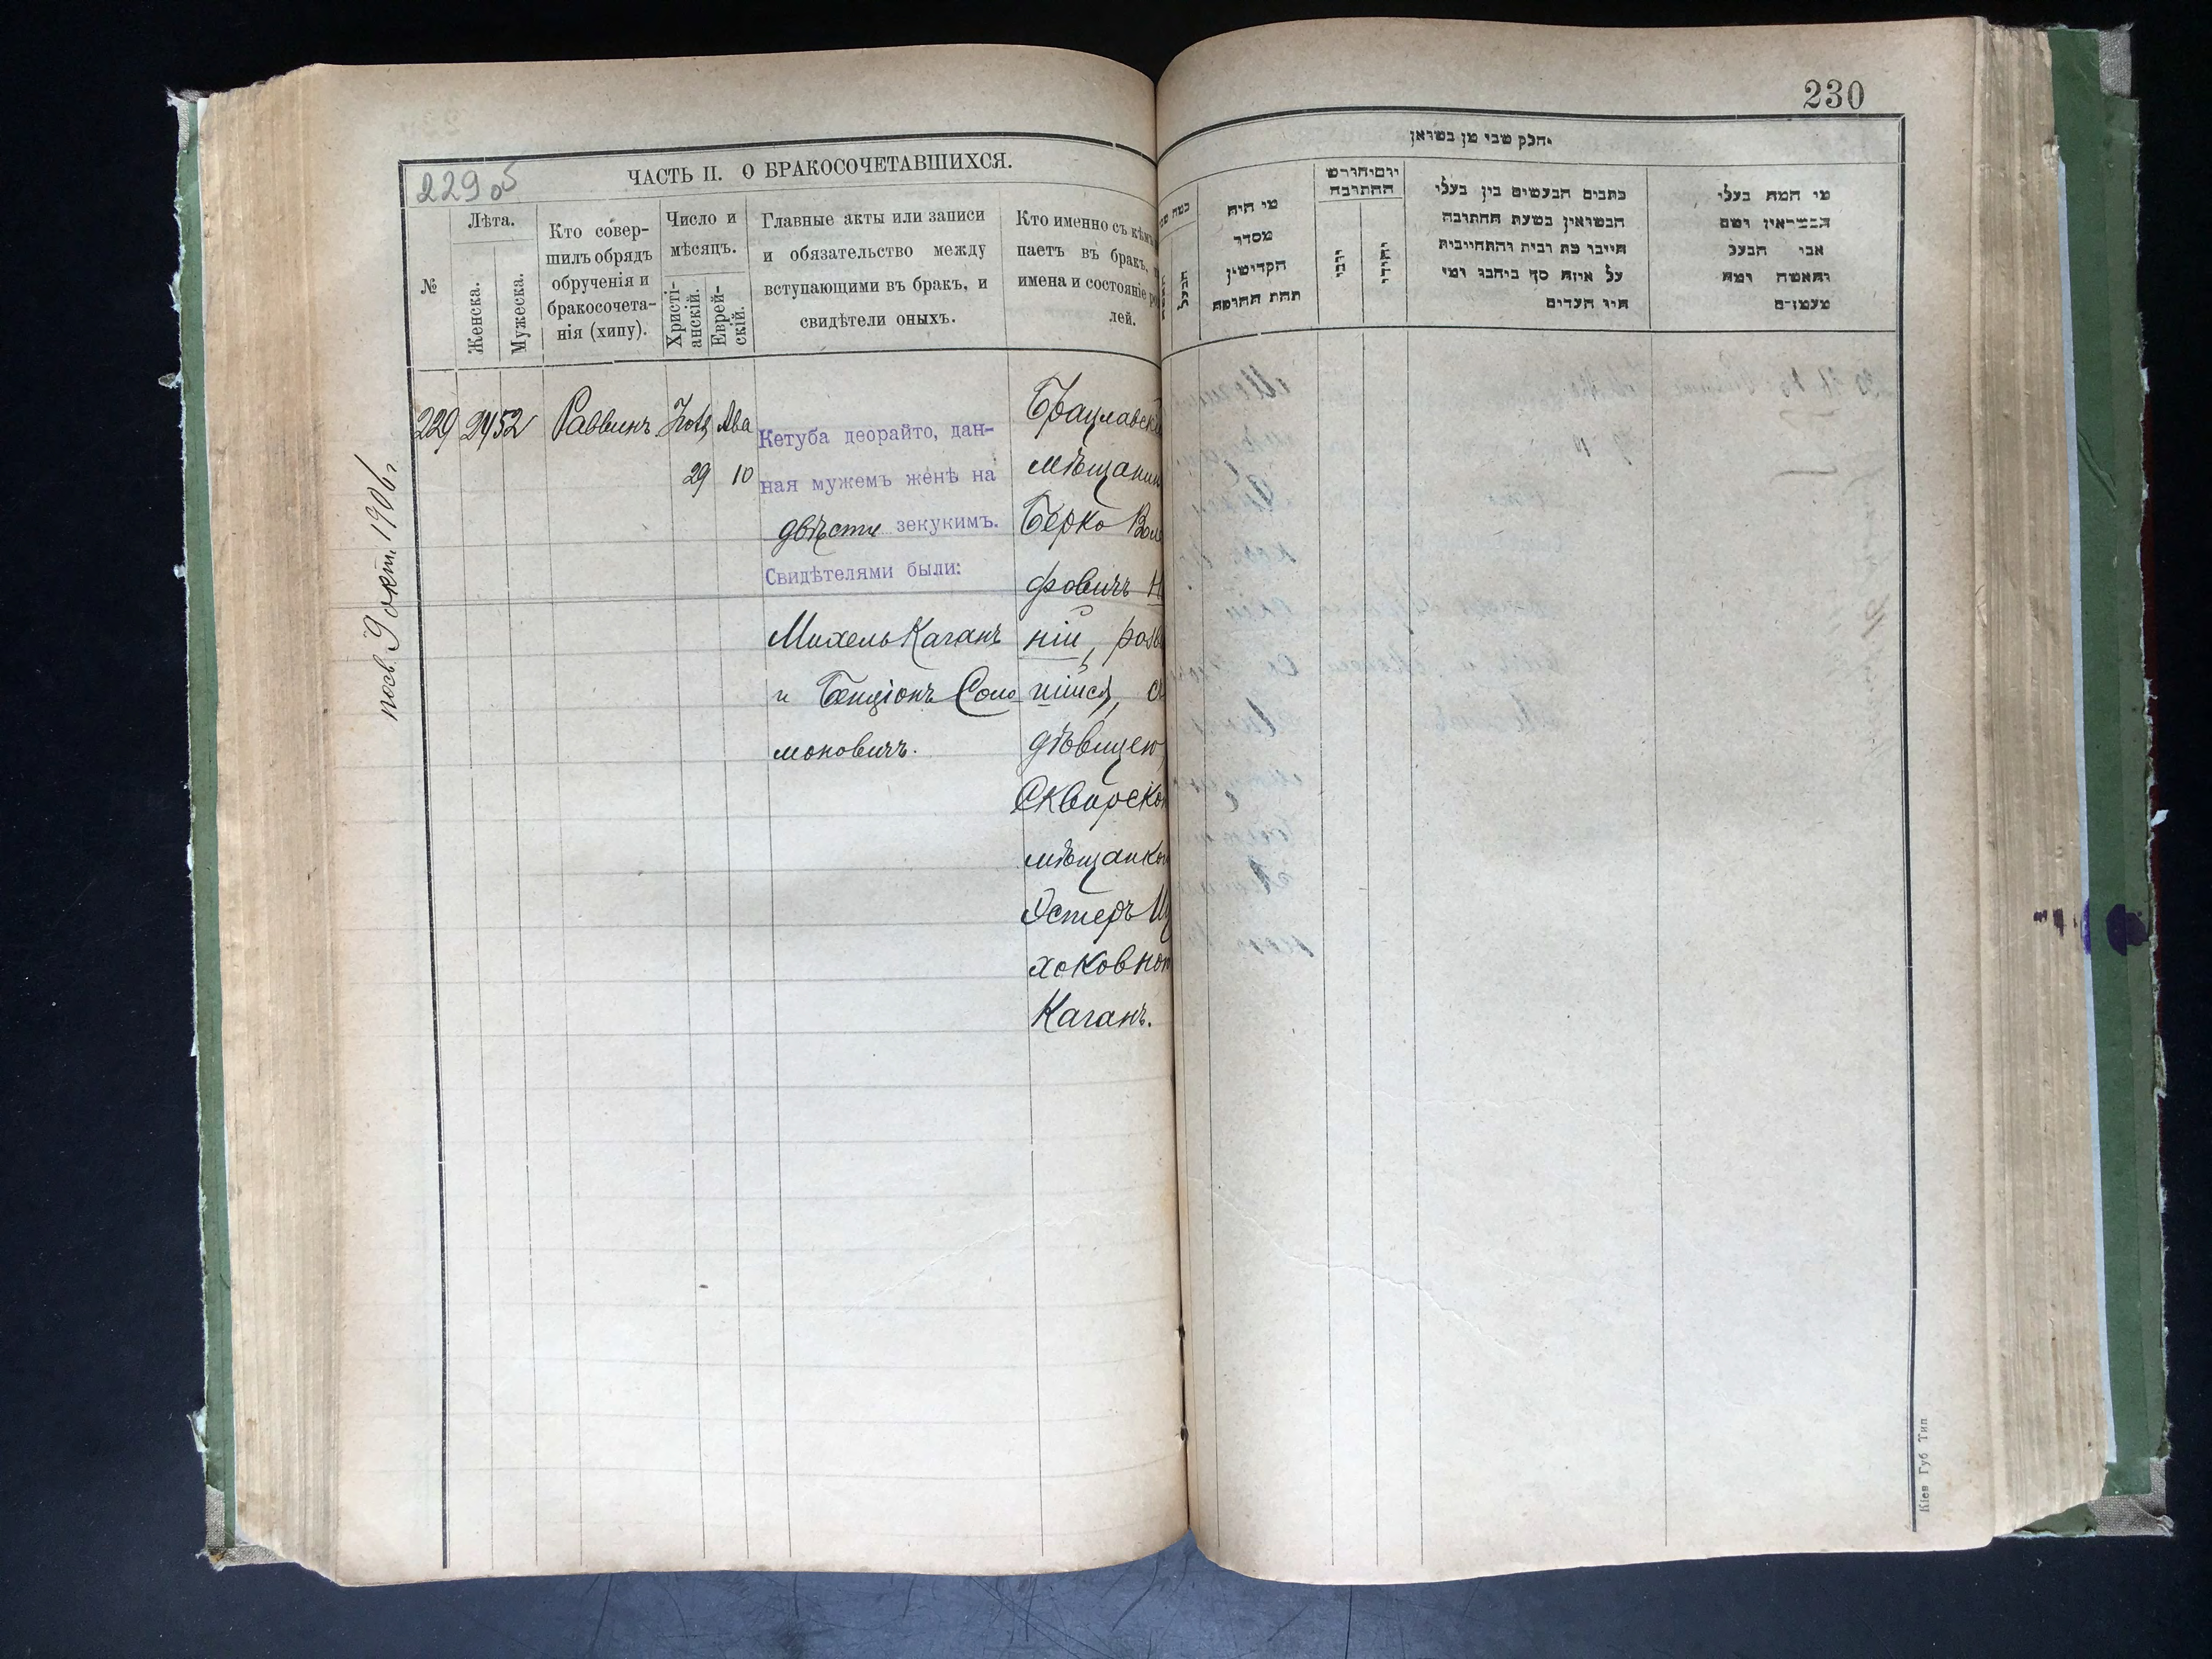 230
229 об
ЧАСТЬ II. О БРАКОСОЧЕТАВШИХСЯ.
№
Лѣта.
Женска.
Мужеска.
Кто совер-
шилъ обрядъ
обрученія и
бракосочета-
нія (хипу).
Число и
мѣсяцъ.
Христі-
анскій.
Еврей-
скій.
Главные акты или записи
и обязательство между
вступающими въ бракъ, и
свидѣтели оныхъ.
Кто именно съ кѣмъ
паетъ въ бракъ,
имена и состояніе ро
лей.
229 24 52 Раввинъ Іюль Ава
29 10
Кетуба деорайто, дан-
ная мужемъ женѣ на
двѣсти зекукимъ.
Свидѣтелями были:
Михель Каганъ
и Бенціонъ Соло
моновичъ.
Брацлавскі
мѣщанин
Берко Вол
фовичъ
ній, разв
шійся, с
дѣвицею
Сквирско
мѣщанко
Эстеръ Иц
хоковно
Каганъ.
посв. 9 окт. 1906 г
חלק שני מן בשואן
מי היה
מסדר
הקדושין
תחת החופה
יום וחודש
החתונה
יהודי
כתבים הנעשים בין בעלי
הנשואין בשעת החתונה
על איזה סך
היו העדים
מי המה בעלי
הנשואין ושם
אבי הבעל
והאשה ומה
מעמדם
Кіев Губ Тип